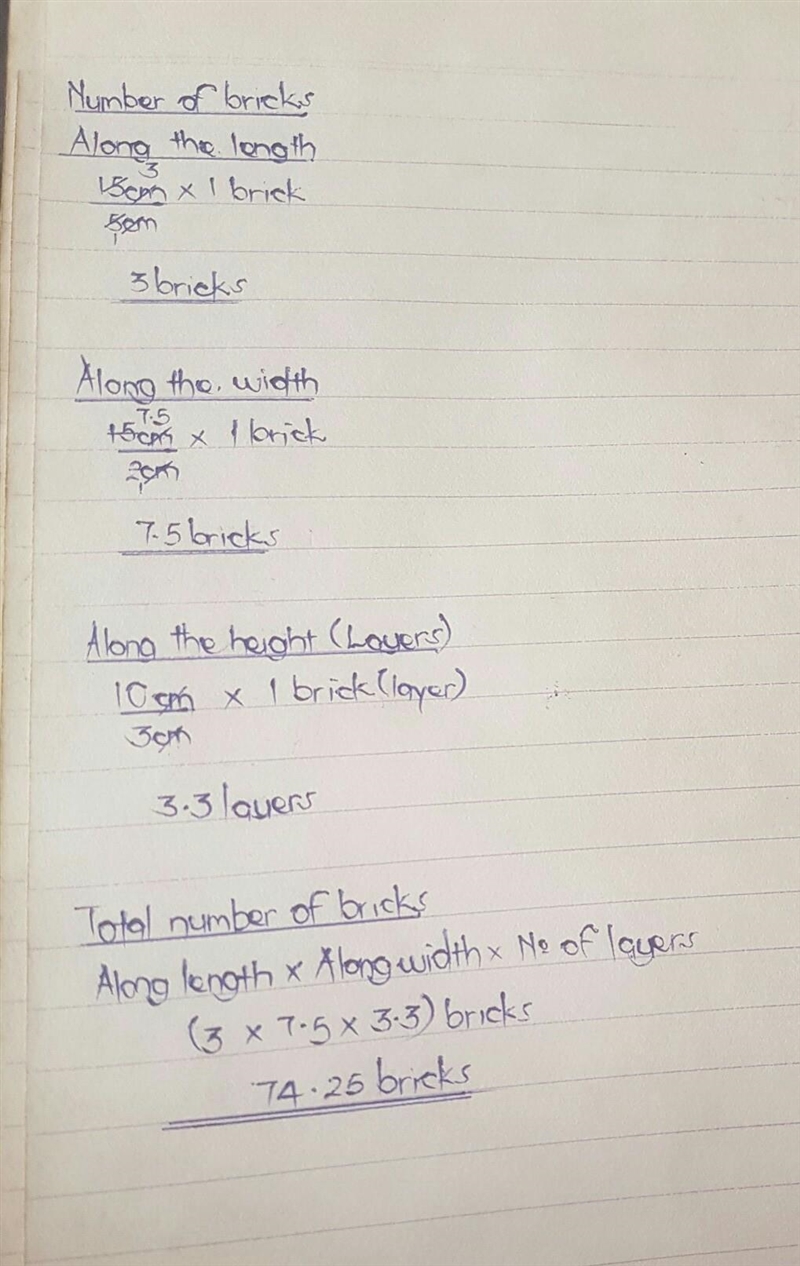 Number of bricks
Along the length
3
15cm × 1 brick
5cm
1
3 bricks
Along the. width
7.5
15cm × 1 brick
2cm
1
7.5 bricks
Along the height (Layers)
10cm × 1 brick (layer)
3cm
3.3 layers
Total number of bricks
Along length × Along width × No of layers
(3 × 7.5 × 3.3) bricks
74.25 bricks